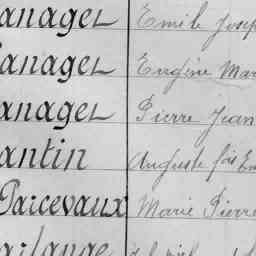 anagel Emile Josep
anagel Eugène Mar
anagel Pierre Jean
antin Auguste fois Em
Parcevaux Marie Pierre
arlange